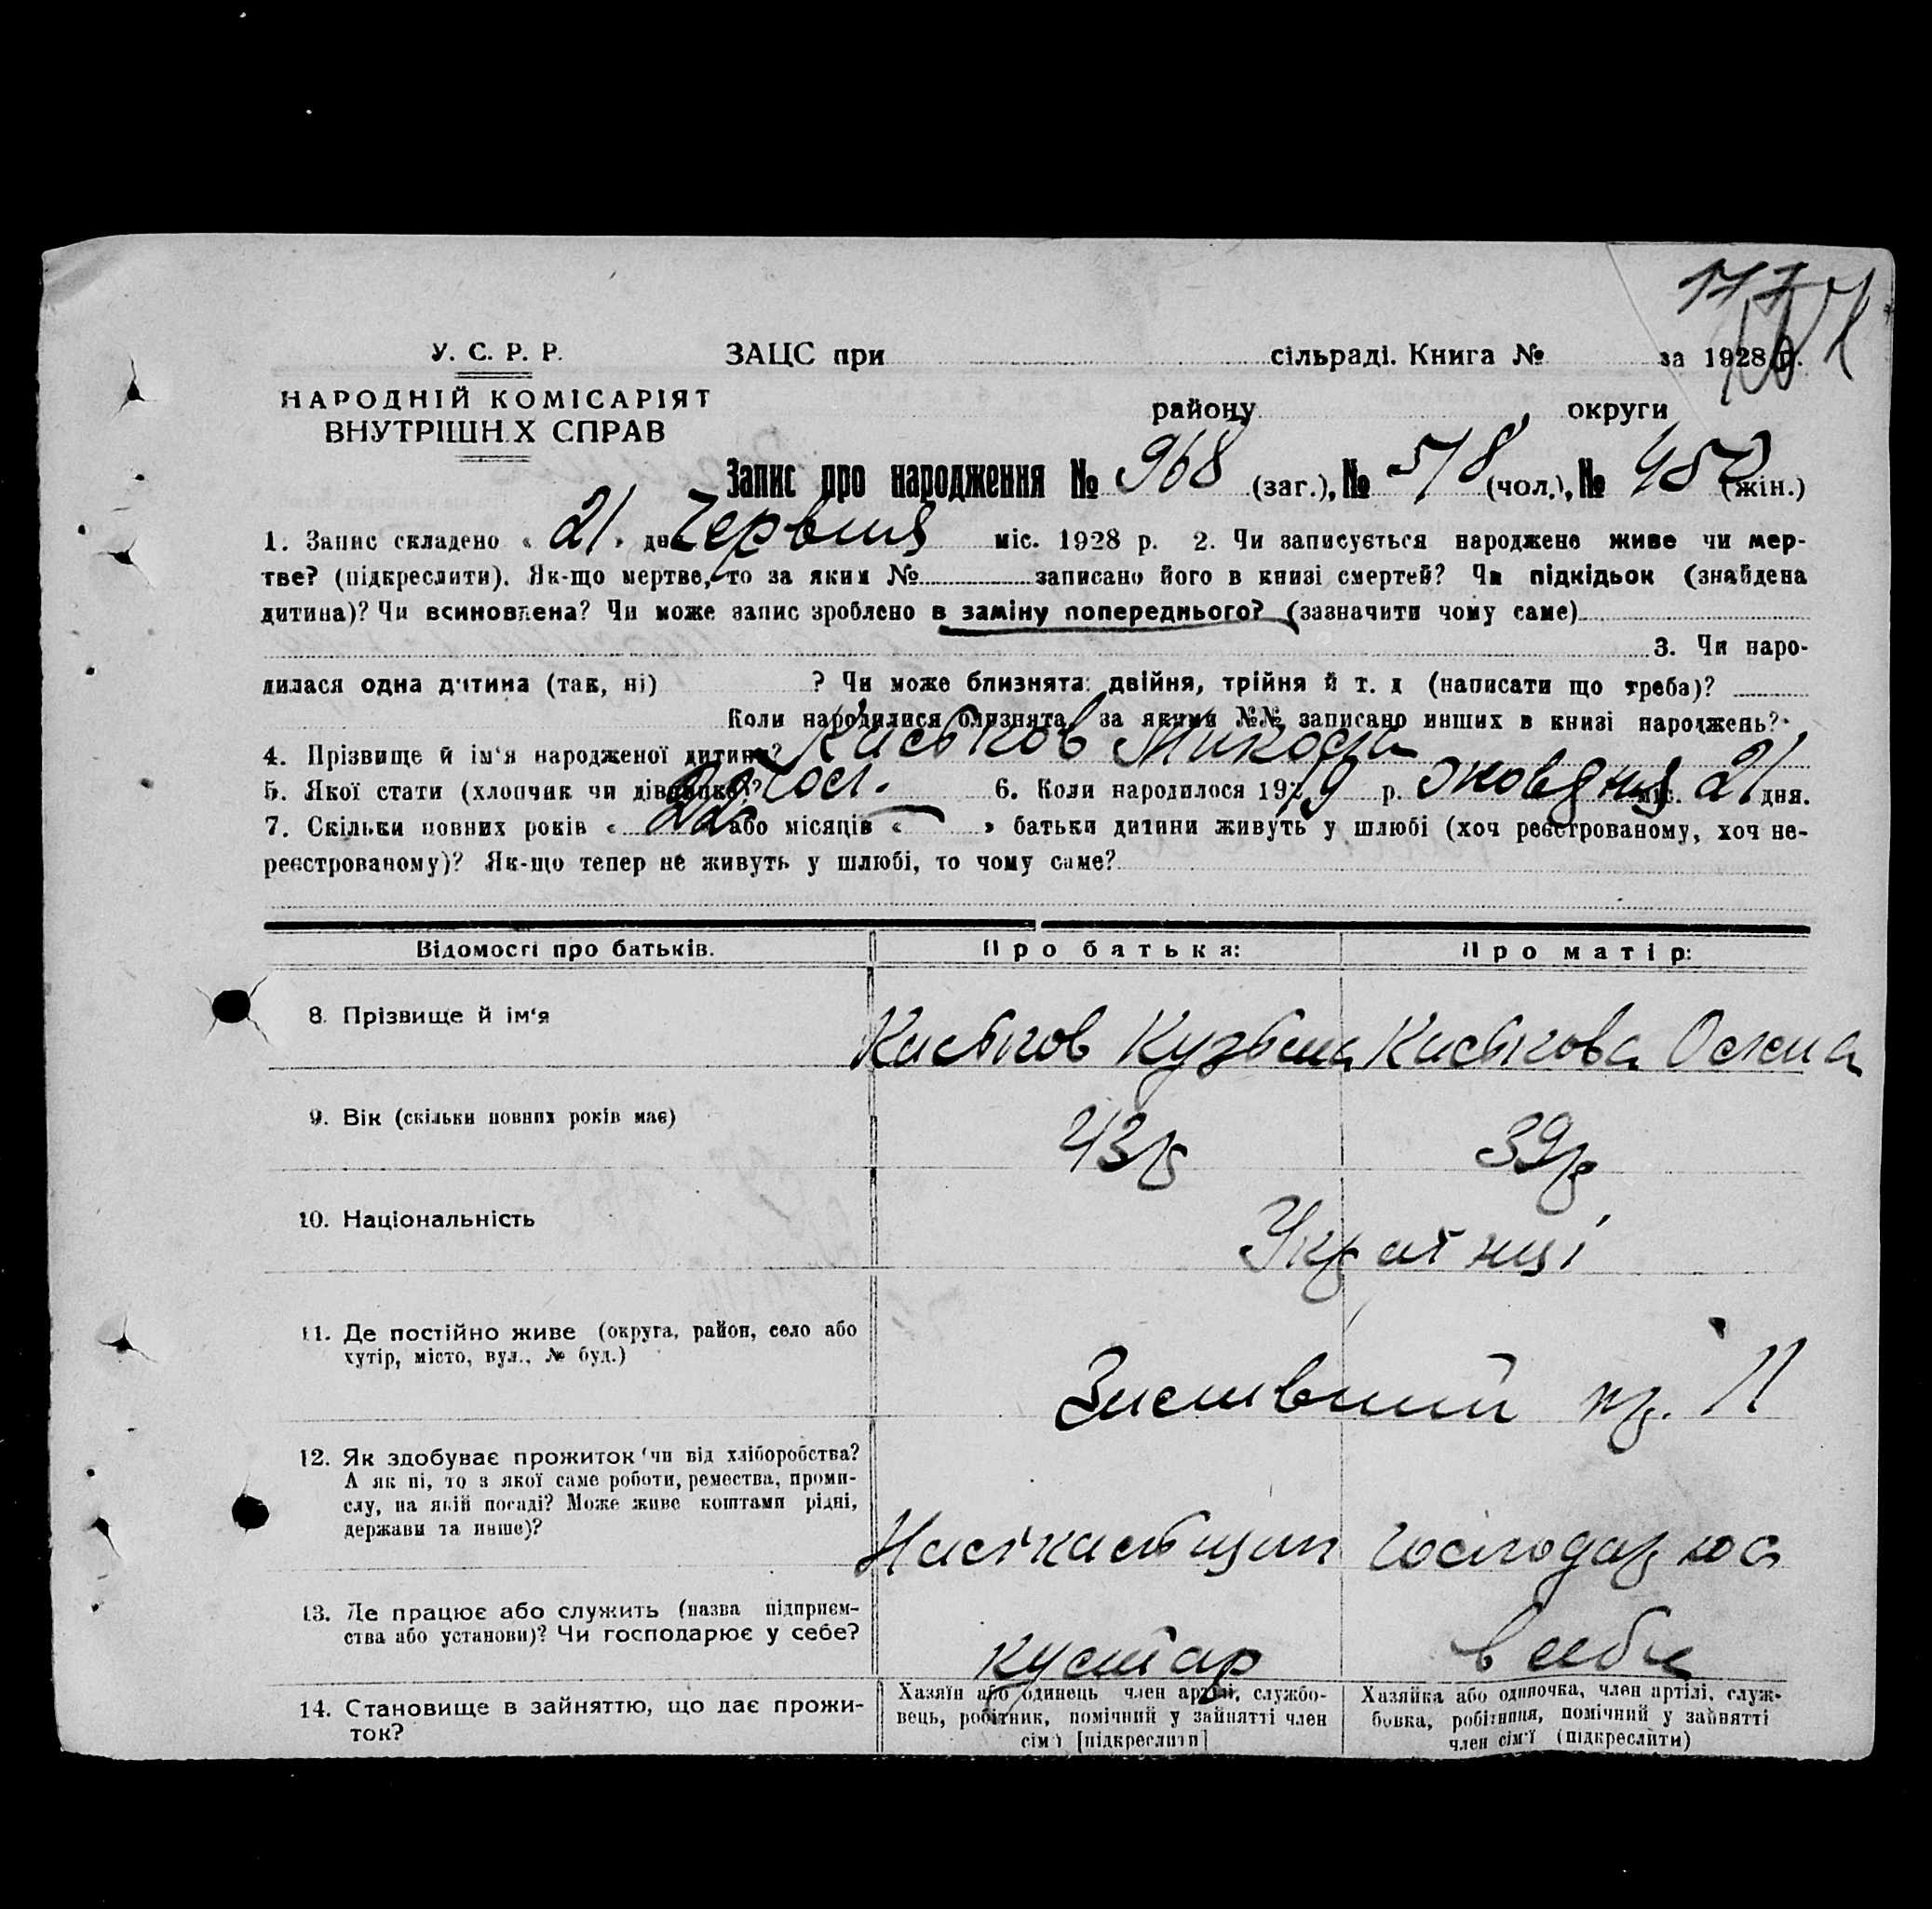 177
У. С. Р. Р.
ЗАЦС при сільраді. Книга № за 1928 р.
НАРОДНІЙ КОМІСАРІЯТ
ВНУТРІШН.Х СПРАВ
району округи
Запис про народження № 968 (заг.), № 518 (чол.), № 450 (жін.)
1. Запис складено « 21 » дн Червня міс. 1928 р. 2. Чи записується народжене живе чи мер-
тве? (підкреслити). Як-що мертве, то за яким № записано його в книзі смертей? Чи підкідьок (знайдена
дитина)? Чи всиновлена? Чи може запис зроблено в заміну попереднього? (зазначити чому саме)
3. Чи наро-
дилася одна дитина (так, ні) ? Чи може близнята: двійня, трійня й т. д (написати що треба)?
Коли народилися близнята, за якими №№ записано инших в книзі народжень?
4. Прізвище й ім'я народженої дитини? Микола
5. Якої стати (хлопчик чи дівчинка)? Чол. 6. Коли народилося 1919 р. Жовтня міс. 21 дня.
7. Скільки повних років « 22 » або місяців « — » батьки дитини живуть у шлюбі (хоч реєстрованому, хоч не-
реєстрованому)? Як-що тепер не живуть у шлюбі, то чому саме?
Відомості про батьків. Про батька: Про матір:
8. Прізвище й ім'я Кузьма
9. Вік (скільки повних років має) 43 р 39 р
10. Національність Українці
11. Де постійно живе (округа, район, село або
хутір, місто, вул., № буд.) 11
12. Як здобуває прожиток (чи від хліборобства?
А як ні, то з якої саме роботи, ремества, проми-
слу, на якій посаді? Може живе коштами рідні,
держави та инше)? господарює
13. Де працює або служить (назва підприєм-
ства або установи)? Чи господарює у себе? кустар в себе
14. Становище в зайняттю, що дає прожи-
ток?
Хазяїн або одинець член артілі, службо-
вець, робітник, помічний у зайнятті член
сім'ї [підкреслити]
Хазяйка або одиночка, член артілі, служ-
бовка, робітниця, помічний у зайнятті
член сім'ї (підкреслити)